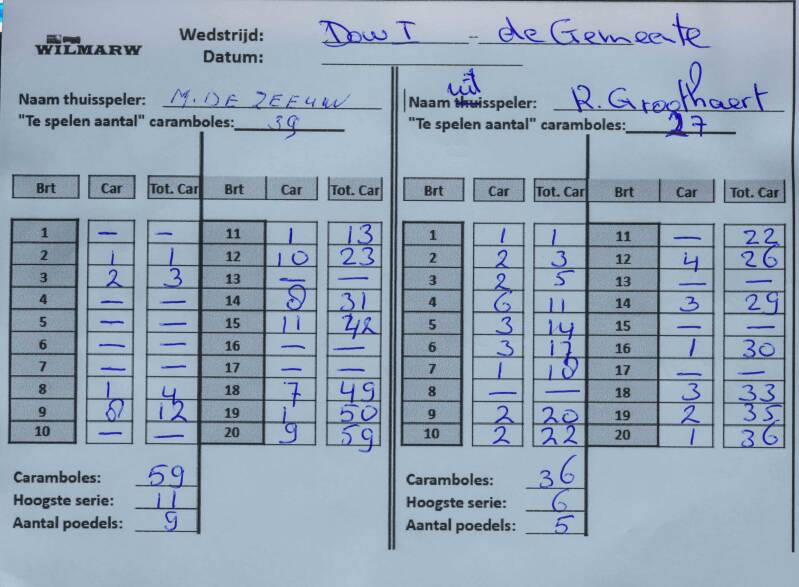 WILMARW
Wedstrijd: Dow I - de Gemeente
Datum:
Naam thuisspeler: M. DE ZEEUW
"Te spelen aantal" caramboles: 39
Brt Car Tot. Car Brt Car Tot. Car
1 — — 11 1 13
2 1 1 12 10 23
3 2 3 13 — —
4 — — 14 8 31
5 — — 15 11 42
6 — — 16 — —
7 — — 17 — —
8 1 4 18 7 49
9 8 12 19 1 50
10 — — 20 9 59
Caramboles: 59
Hoogste serie: 11
Aantal poedels: 9
uit
Naam thuisspeler: R. Groothaert
"Te spelen aantal" caramboles: 27
Brt Car Tot. Car Brt Car Tot. Car
1 1 1 11 — 22
2 2 3 12 4 26
3 2 5 13 — —
4 6 11 14 3 29
5 3 14 15 — —
6 3 17 16 1 30
7 1 18 17 — —
8 — — 18 3 33
9 2 20 19 2 35
10 2 22 20 1 36
Caramboles: 36
Hoogste serie: 6
Aantal poedels: 5